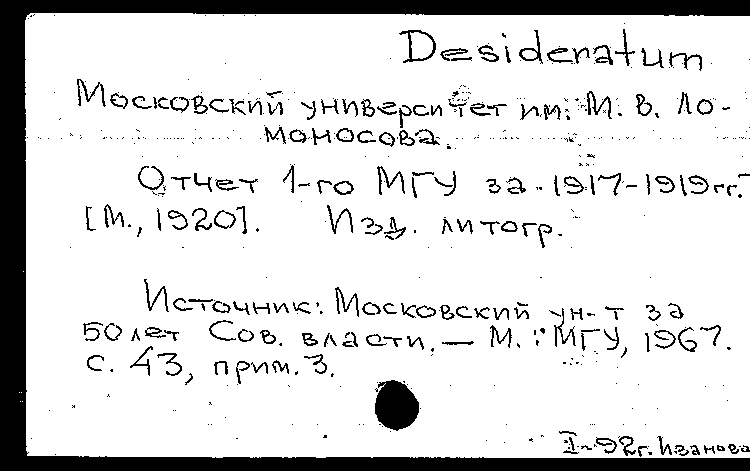 Desideratum
Московский университет им. М. В. Ло-
моносова.
Отчет 1-го МГУ за 1917-1919 гг.
[М., 1920]. Изд. литогр.
Источник: Московский ун-т за
50 лет Сов. власти. — М.: МГУ, 1967.
с. 43, прим. 3.
I-92г. Иванова